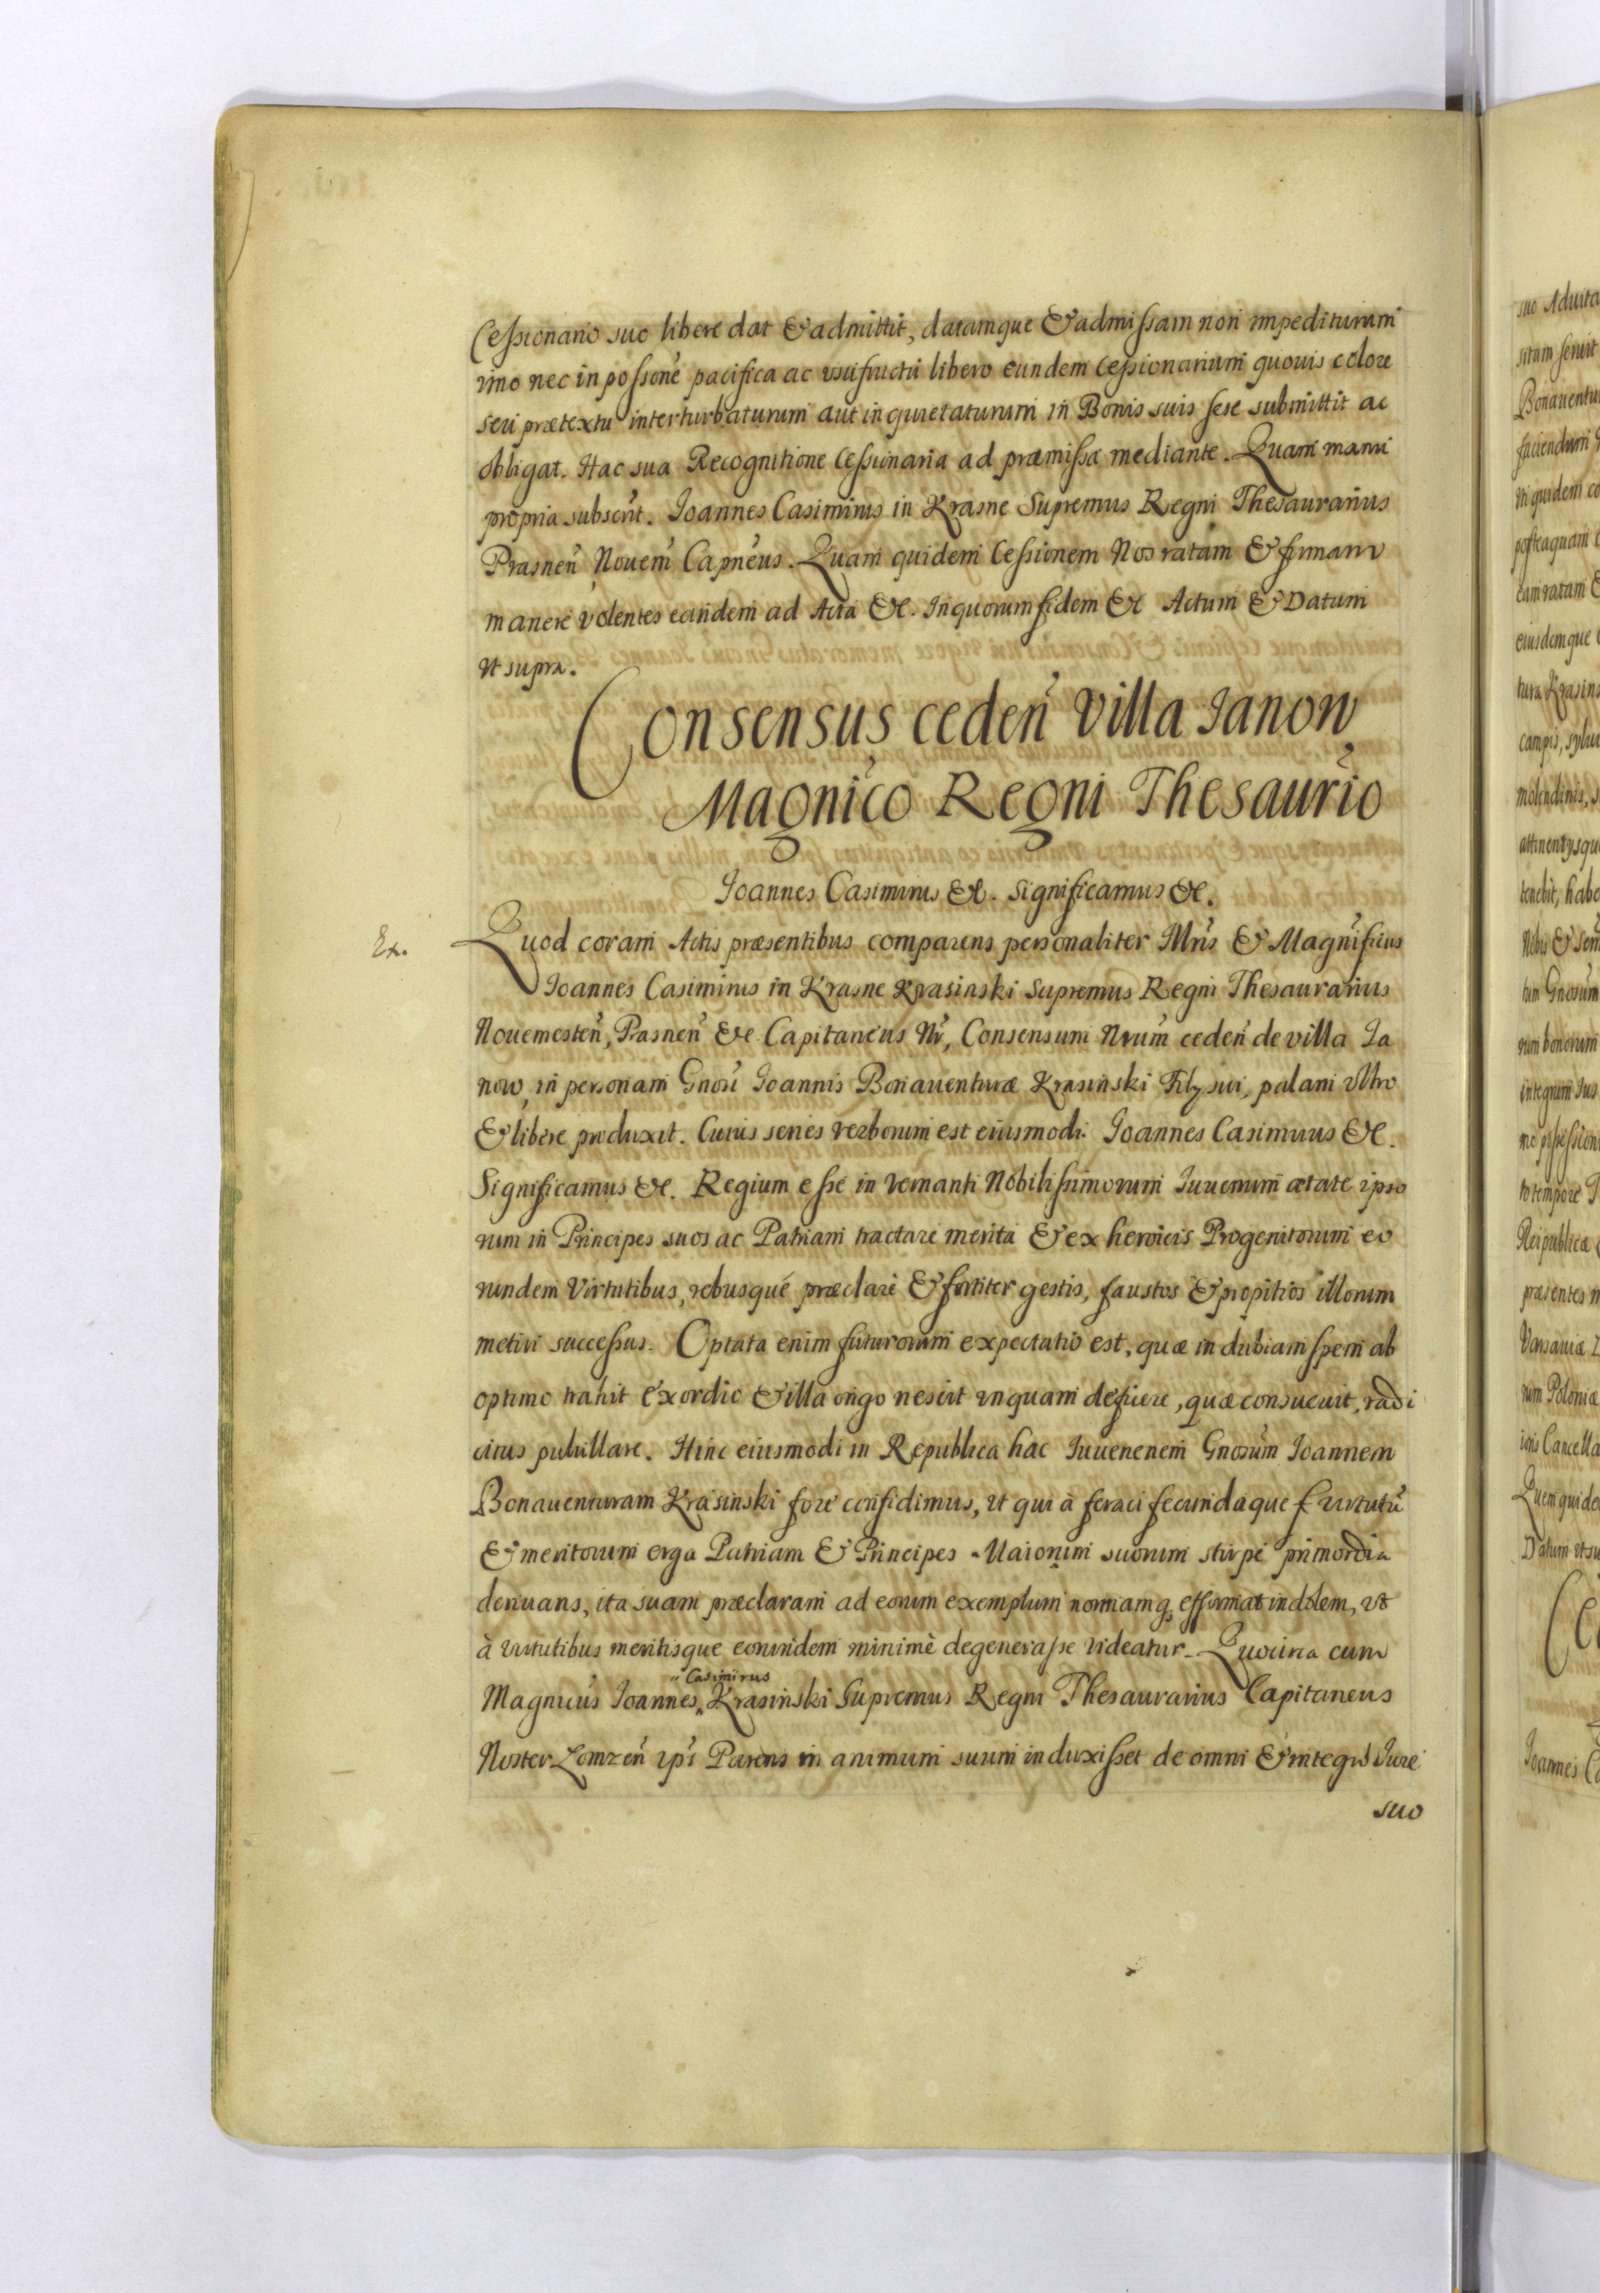 Cessionario suo libere dat & admittit, datamque & admissam non impediturum
imo nec in possone pacifica ac usufructu libero eundem Cessionarium quovis colore
seu prætextu interturbaturum aut inquietaturum in Bonis suis sese submittit ac
obligat. Hac sua Recognitione Cessionaria ad præmissa mediante. Quam manu
propria subscrt. Joannes Casimirus in Krasne Supremus Regni Thesaurarius
Prasnen Novem Capneus. Quam quidem Cessionem Nos ratam & firmam
manere volentes eandem ad Acta &c. In quorum fidem &c Actum & Datum
ut supra.
Consensus ceden villa Janow
Magnico Regni Thesaurio
Joannes Casimirus &c. Significamus &c.
Ex.
Quod coram Actis præsentibus comparens personaliter Illris & Magnificus
Joannes Casimirus in Krasne Krasinski Supremus Regni Thesaurarius
Novemesten, Prasnen &c Capitaneus Nr, Consensum Nrum ceden de villa Ja
now, in personam Gnosi Joannis Bonaventuræ Krasinski Filij sui, palam ultro
& libere produxit. Cuius series verborum est eiusmodi. Joannes Casimirus &c.
Significamus &c. Regium esse in vernanti Nobilissimorum Iuvenum ætate ipso
rum in Principes suos ac Patriam tractare merita & ex heroicis Progenitorum eo
rundem Virtutibus, rebusque præclare & fortiter gestis, faustos & propitios illorum
metiri successus. Optata enim futurorum expectatio est, quæ indubiam spem ab
optimo trahit exordio & illa origo nescit unquam deficere, quæ consuevit, radi
citus pulullare. Hinc eiusmodi in Republica hac Iuvenenem Gnosum Joannem
Bonaventuram Krasinski fore confidimus, ut qui à feraci fecundaque Virtutu
& meritorum erga Patriam & Principes Maiorum suorum stirpe primordia
derivans, ita suam præclaram ad eorum exemplum normamq, efformat indolem, ut
à virtutibus meritisque eorundem minimè degenerasse videatur. Quocirca cum
Casimirus
Magnicus Joannes Krasinski Supremus Regni Thesaurarius Capitaneus
Noster Lomzen ipsi Parens in animum suum induxisset de omni & integro Jure
suo